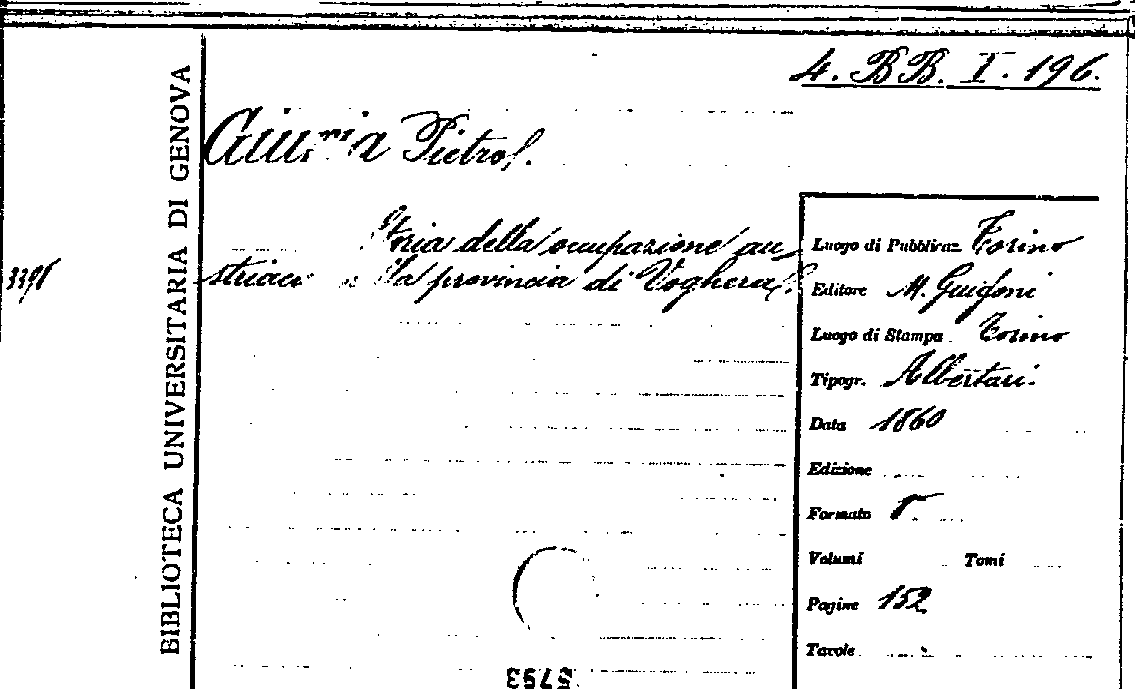 4. BB. I. 196.
BIBLIOTECA UNIVERSITARIA DI GENOVA
Giuria Pietro.
Storia della occupazione au-
striaca la provincia di Voghera.
3398
Luogo di Pubblicaz. Torino
Editore M. Guigoni
Luogo di Stampa Torino
Tipogr. Albertari.
Data 1860
Edizione
Formato 8°
Volumi Tomi
Pagine 152
Tavole
5793